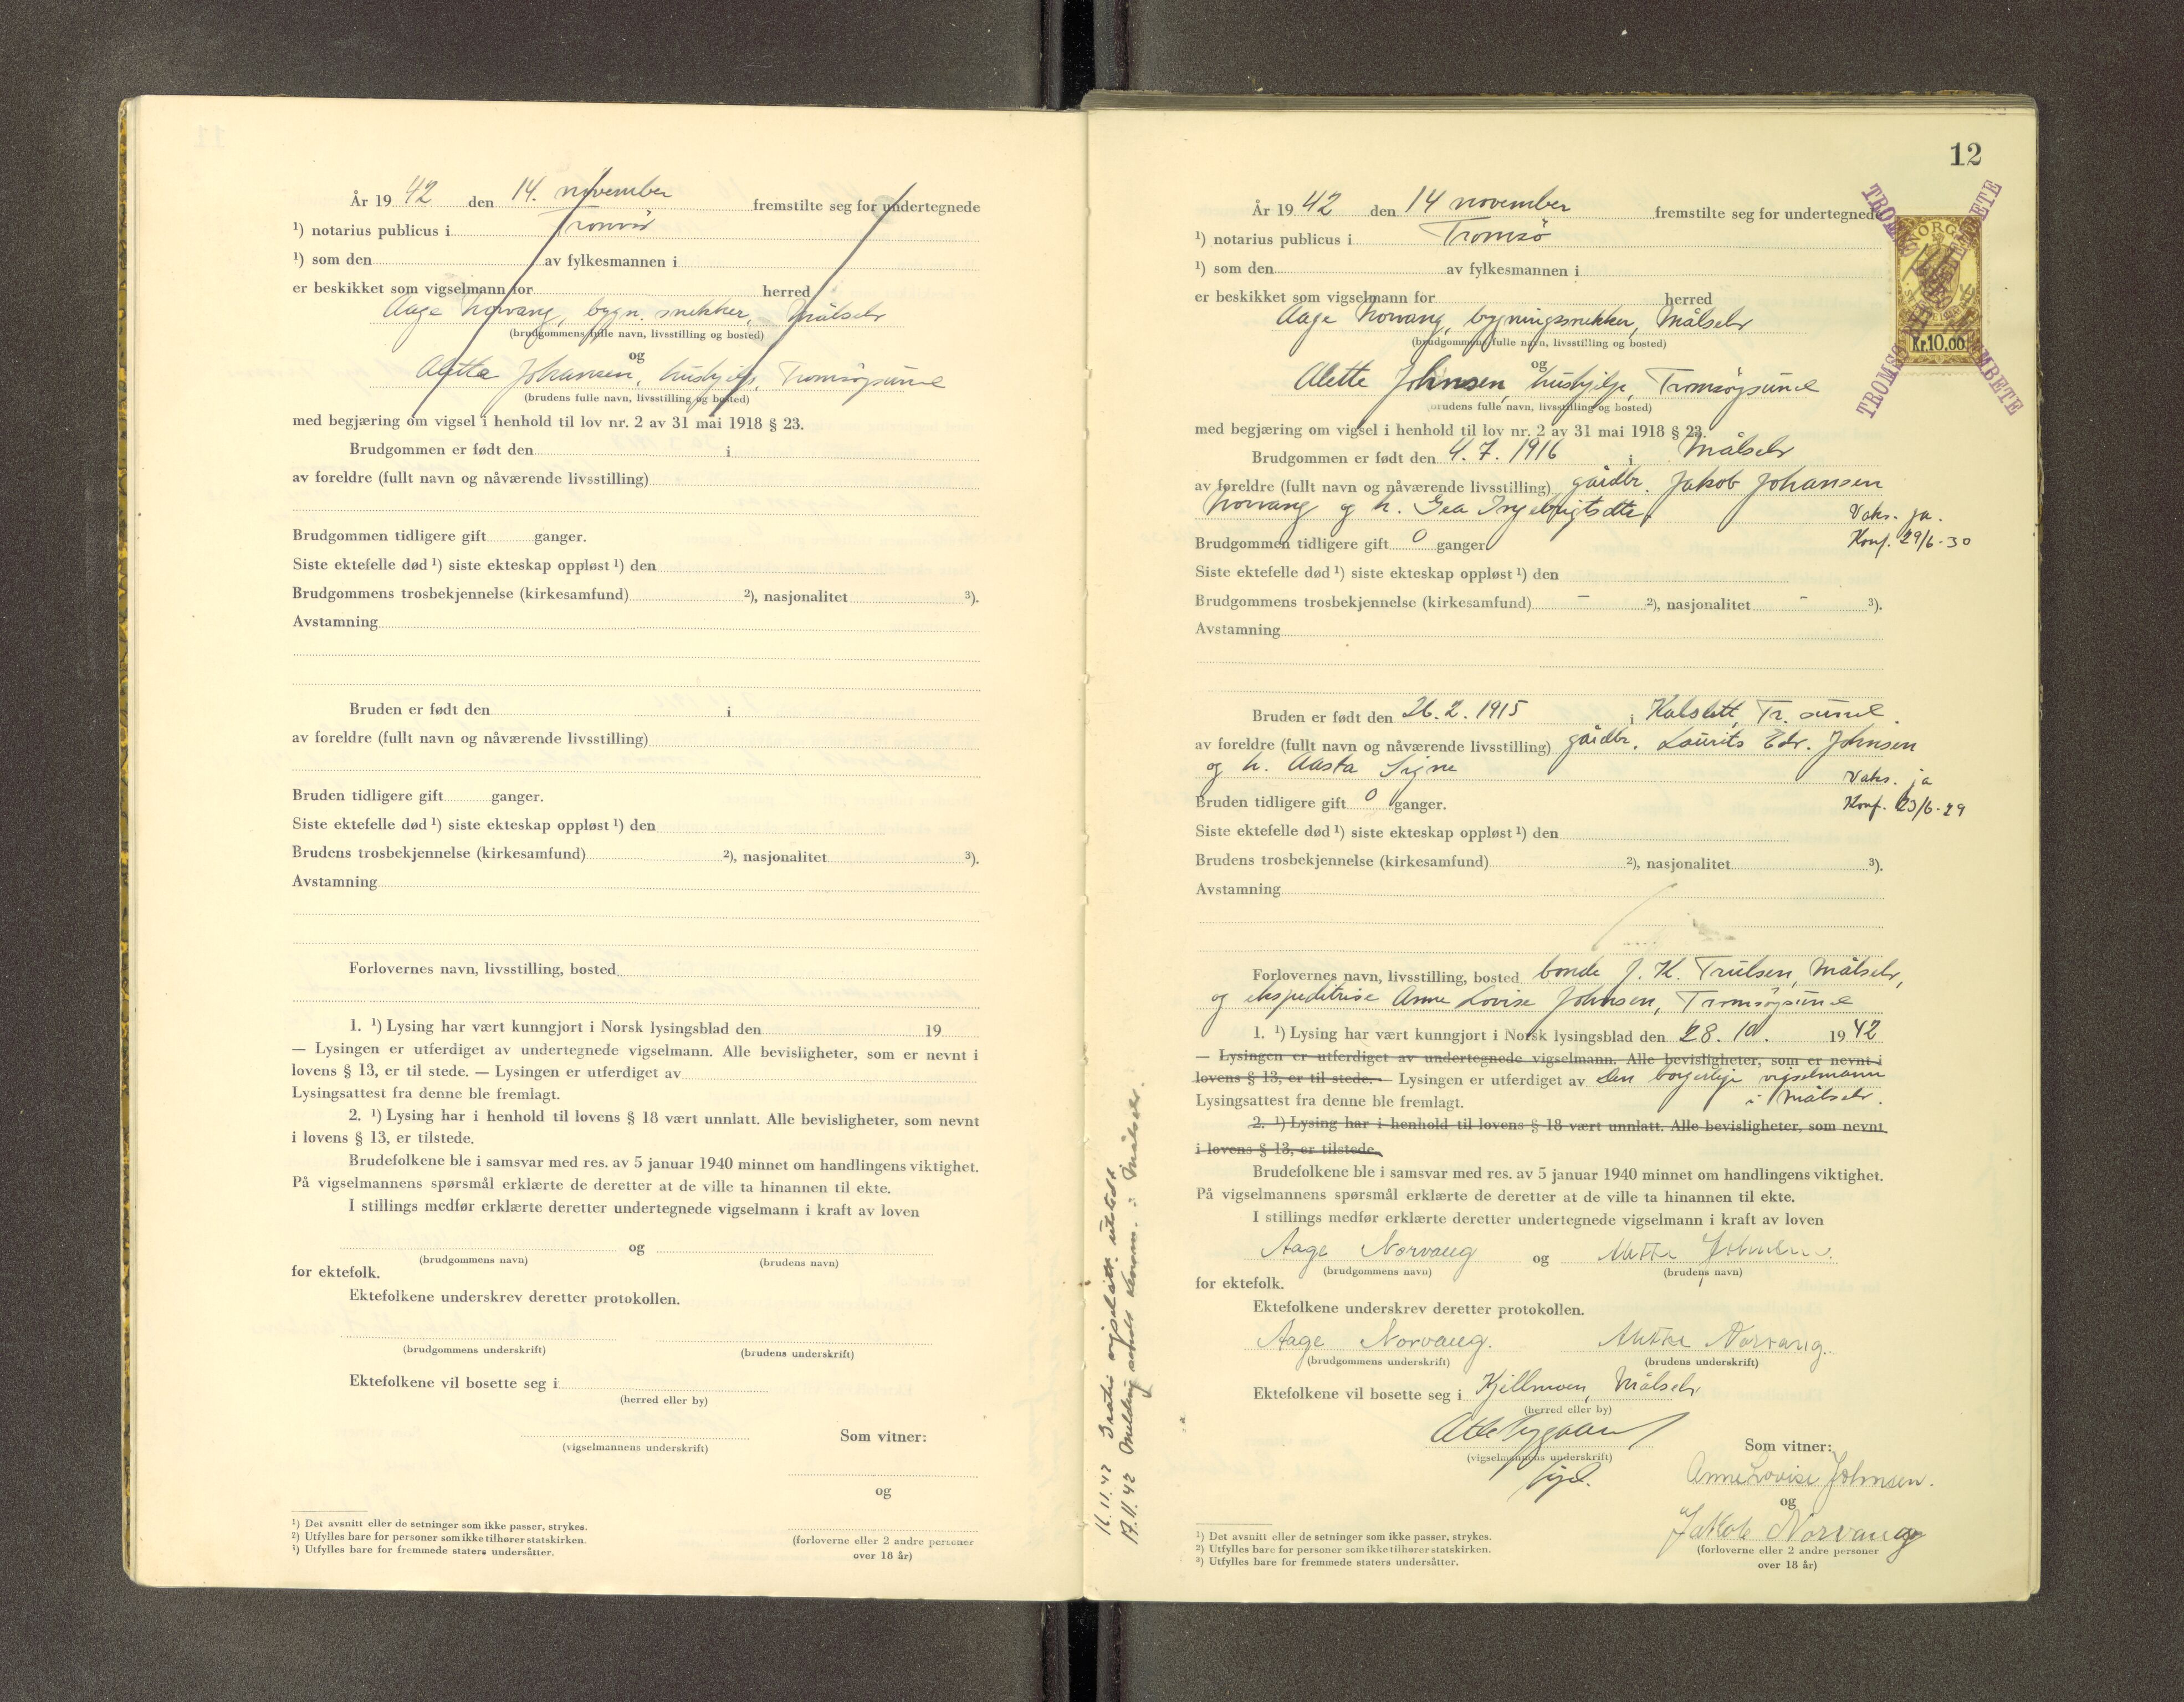 År 19 42 den 14. november fremstilte seg for undertegnede
¹) notarius publicus i Tromsö
¹) som den av fylkesmannen i
er beskikket som vigselmann for herred
Aage Norvang, bygn. snekker, Målselv
(brudgommens fulle navn, livsstilling og bosted)
og
Alette Johansen, hushjelp, Tromsöysund
(brudens fulle navn, livsstilling og bosted)
med begjæring om vigsel i henhold til lov nr. 2 av 31 mai 1918 § 23.
Brudgommen er født den i
av foreldre (fullt navn og nåværende livsstilling)
Brudgommen tidligere gift ganger.
Siste ektefelle død ¹) siste ekteskap oppløst ¹) den
Brudgommens trosbekjennelse (kirkesamfund) ²), nasjonalitet ³).
Avstamning
Bruden er født den i
av foreldre (fullt navn og nåværende livsstilling)
Bruden tidligere gift ganger.
Siste ektefelle død ¹) siste ekteskap oppløst ¹) den
Brudens trosbekjennelse (kirkesamfund) ²), nasjonalitet ³).
Avstamning
Forlovernes navn, livsstilling, bosted
1. ¹) Lysing har vært kunngjort i Norsk lysingsblad den 19
— Lysingen er utferdiget av undertegnede vigselmann. Alle bevisligheter, som er nevnt i
lovens § 13, er til stede. — Lysingen er utferdiget av
Lysingsattest fra denne ble fremlagt.
2. ¹) Lysing har i henhold til lovens § 18 vært unnlatt. Alle bevisligheter, som nevnt
i lovens § 13, er tilstede.
Brudefolkene ble i samsvar med res. av 5 januar 1940 minnet om handlingens viktighet.
På vigselmannens spørsmål erklærte de deretter at de ville ta hinannen til ekte.
I stillings medfør erklærte deretter undertegnede vigselmann i kraft av loven
og
(brudgommens navn) (brudens navn)
for ektefolk.
Ektefolkene underskrev deretter protokollen.
(brudgommens underskrift) (brudens underskrift)
Ektefolkene vil bosette seg i
(herred eller by)
(vigselmannens underskrift)
Som vitner:
og
(forloverne eller 2 andre personer
over 18 år)
¹) Det avsnitt eller de setninger som ikke passer, strykes.
²) Utfylles bare for personer som ikke tilhører statskirken.
³) Utfylles bare for fremmede staters undersåtter.
12
År 19 42 den 14 november fremstilte seg for undertegnede
¹) notarius publicus i Tromsö
¹) som den av fylkesmannen i
er beskikket som vigselmann for herred
Aage Norvang, bygningssnekker, Målselv
(brudgommens fulle navn, livsstilling og bosted)
og
Alette Johnsen, hushjelp, Tromsöysund
(brudens fulle navn, livsstilling og bosted)
med begjæring om vigsel i henhold til lov nr. 2 av 31 mai 1918 § 23.
Brudgommen er født den 4. 7. 1916 i Målselv
av foreldre (fullt navn og nåværende livsstilling) gårdbr. Jakob Johansen
Norvang og h. Gea Ingebrigtsdtr. Vaks. ja.
Brudgommen tidligere gift 0 ganger. Konf. 29/6-30
Siste ektefelle død ¹) siste ekteskap oppløst ¹) den
Brudgommens trosbekjennelse (kirkesamfund) - ²), nasjonalitet - ³).
Avstamning
Bruden er født den 26. 2. 1915 i Kalslett, Tr. sund.
av foreldre (fullt navn og nåværende livsstilling) gårdbr. Laurits Edv. Johnsen
og h. Aasta Signe Vaks. ja
Bruden tidligere gift 0 ganger. Konf. 23/6-29
Siste ektefelle død ¹) siste ekteskap oppløst ¹) den
Brudens trosbekjennelse (kirkesamfund) ²), nasjonalitet ³).
Avstamning
Forlovernes navn, livsstilling, bosted bonde J. K. Trulsen, Målselv,
og ekspeditrise Anne Lovise Johnsen, Tromsöysund
1. ¹) Lysing har vært kunngjort i Norsk lysingsblad den 28. 10. 19 42
— Lysingen er utferdiget av undertegnede vigselmann. Alle bevisligheter, som er nevnt i
lovens § 13, er til stede. — Lysingen er utferdiget av den borgerlige vigselmann
Lysingsattest fra denne ble fremlagt. i Målselv.
2. ¹) Lysing har i henhold til lovens § 18 vært unnlatt. Alle bevisligheter, som nevnt
i lovens § 13, er tilstede.
Brudefolkene ble i samsvar med res. av 5 januar 1940 minnet om handlingens viktighet.
På vigselmannens spørsmål erklærte de deretter at de ville ta hinannen til ekte.
I stillings medfør erklærte deretter undertegnede vigselmann i kraft av loven
Aage Norvang og Alette Johnsen.
(brudgommens navn) (brudens navn)
for ektefolk.
Ektefolkene underskrev deretter protokollen.
Aage Norvang. Alette Norvang.
(brudgommens underskrift) (brudens underskrift)
Ektefolkene vil bosette seg i Kjellmoen, Målselv
(herred eller by)
(vigselmannens underskrift)
Som vitner:
Anne Lovise Johnsen.
og
Jakob Norvang
(forloverne eller 2 andre personer
over 18 år)
¹) Det avsnitt eller de setninger som ikke passer, strykes.
²) Utfylles bare for personer som ikke tilhører statskirken.
³) Utfylles bare for fremmede staters undersåtter.
16.11.42 Gratis vigselatt. utstedt
17.11.42 Melding sendt i Målselv.
NORGE
Kr.10,00